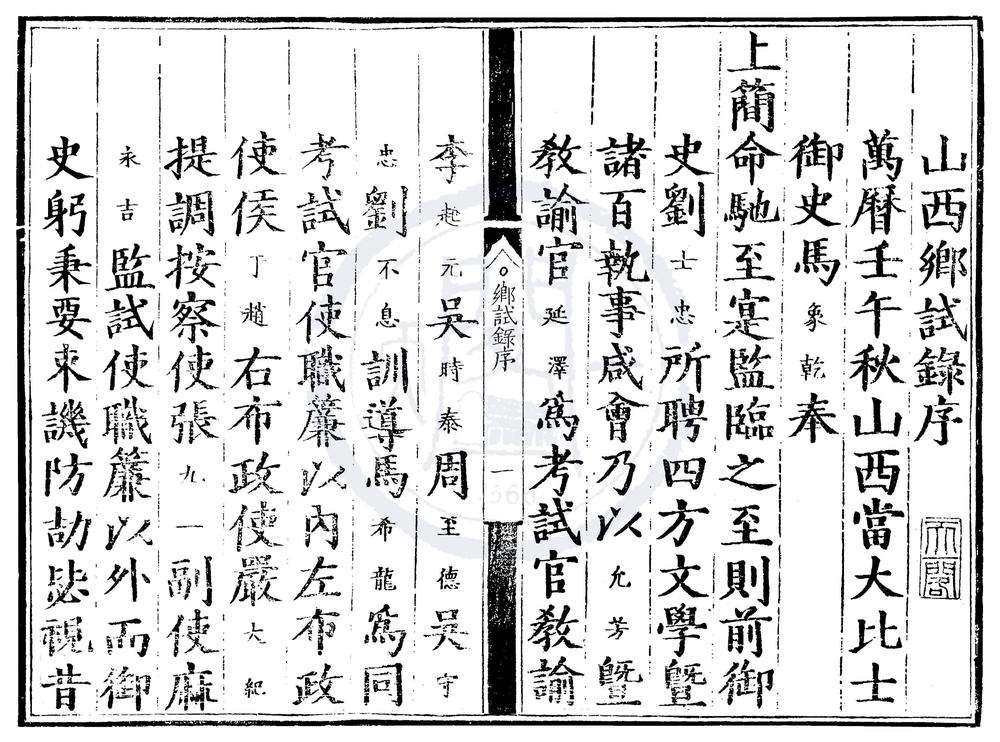 山西鄉試錄序
萬曆壬午秋山西當大比士
御史馬象乾奉
上簡命馳至寔監臨之至則前御
史劉士忠所聘四方文學曁
諸百執事咸會乃以允芳曁
教諭官延澤爲考試官教諭
鄉試錄序
一
李起元吳時泰周至德吳守
忠劉不息訓導馬希龍爲同
考試官使職簾以內左布政
使侯于趙右布政使嚴大紀
提調按察使張九一副使麻
永吉監試使職簾以外而御
史躬秉要束譏防劼毖視昔